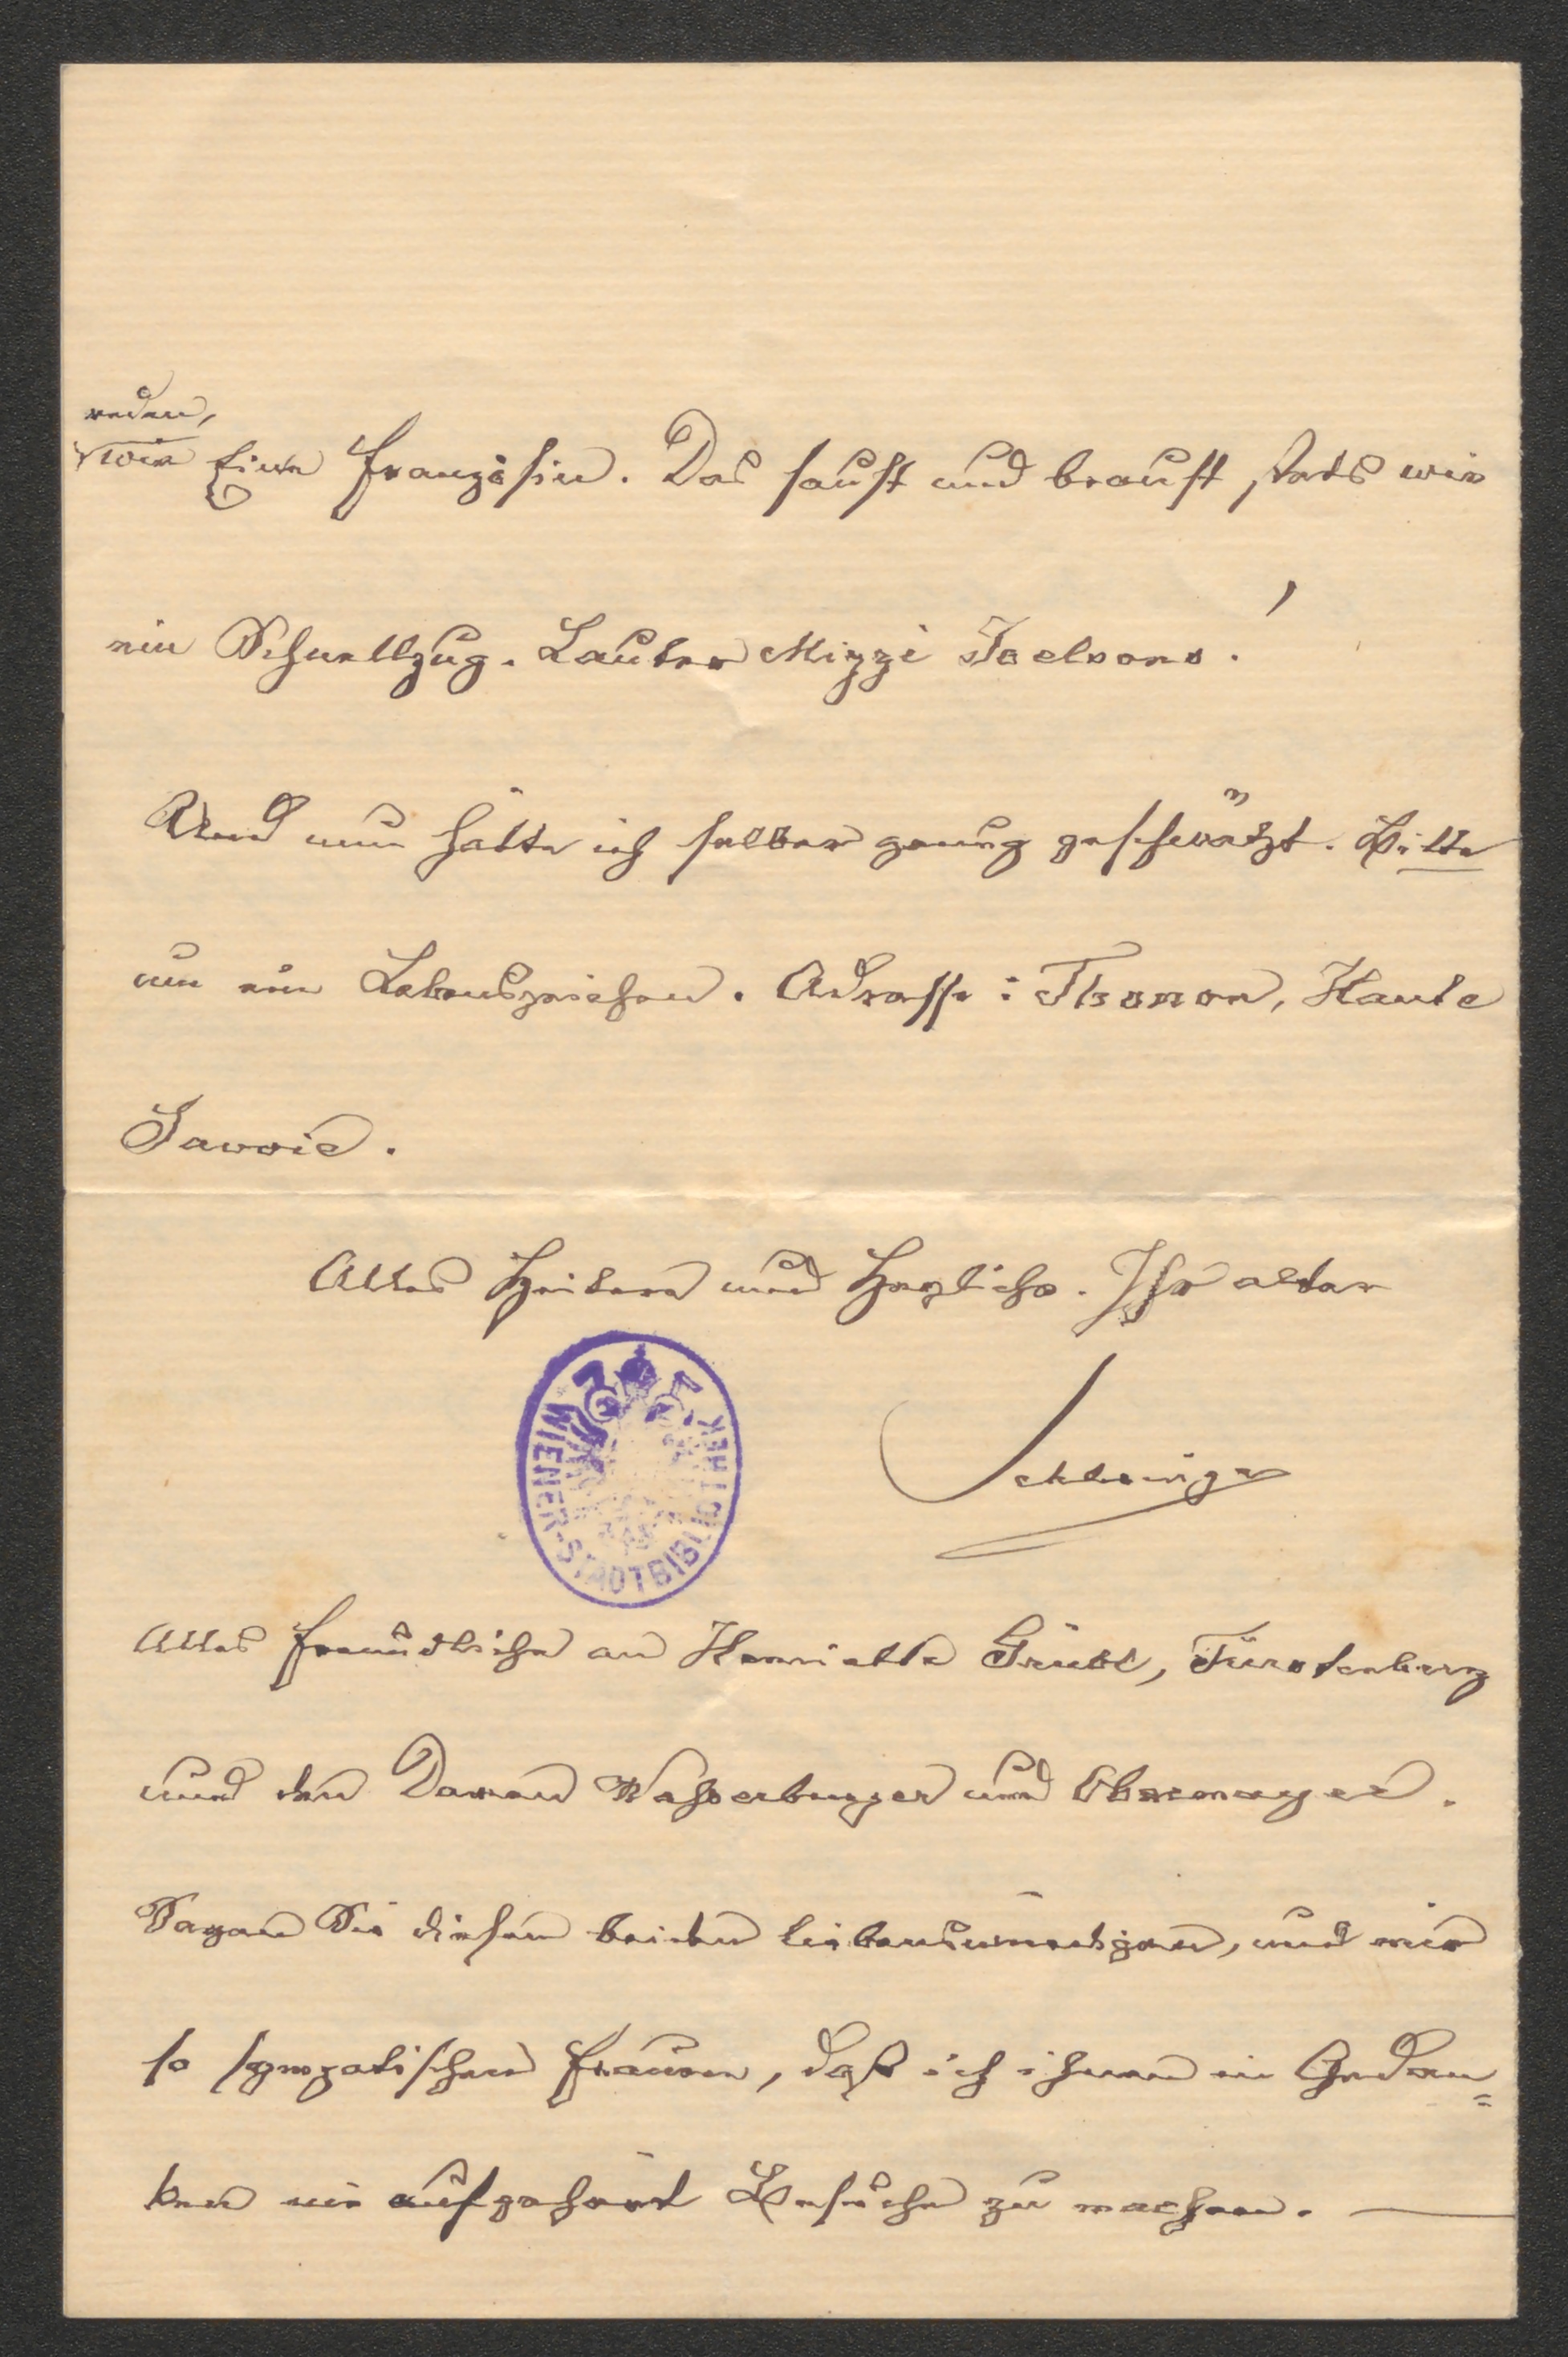 reden,
wie Eine Französin. Das saust und braust stets wie
ein Schnellzug. Lauter Mizzi Joelsons!
Und nun hätte ich selber genug geschwätzt. Bitte
um ein Lebenszeichen. Adresse: Thonon, Haute
Savoie.
Alles Heitere und Herzliche. Ihr alter
Schlesinger
WIENER-STADTBIBLIOTHEK
Alles freundliche an Henriette Grübl, Fürstenberg
und den Damen Wasserburger und Obermayer.
Sagen Sie diesen beiden liebenswürdigen, und mir
so sympatischen Frauen, daß ich ihnen in Gedan=
ken nie aufgehört Besuche zu machen. —